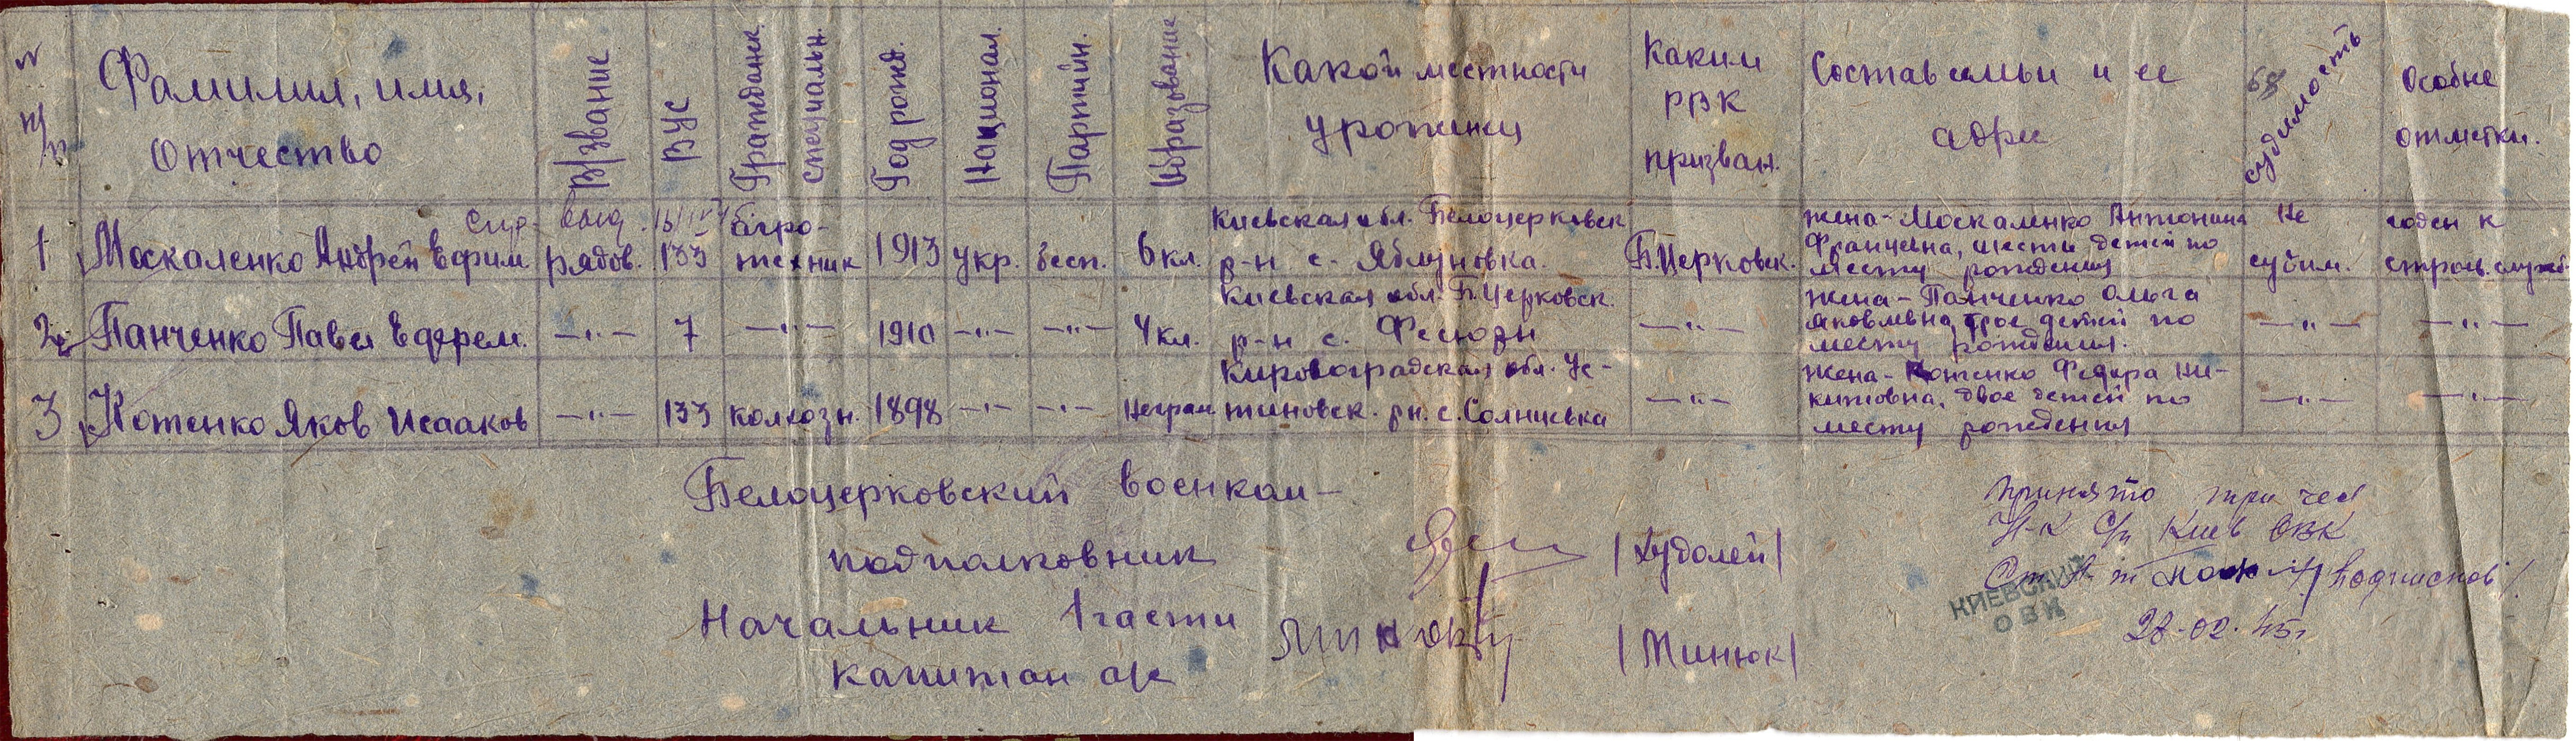 № п/п
Фамилия, имя, Отчество
В/звание
ВУС
Гражданск. специальн.
Год рожд.
Национал.
Партийн.
Образование
Какой местности уроженец
Каким РВК призван.
Состав семьи и ее адрес
68
судимость
Особые отметки.
1 Москаленко Андрей Ефрим рядов. 133 агротехник 1913 укр. бесп. 6 кл.
Киевская обл. Белоцерковск
р-н с. Яблуновка.
Б.Церковск.
жена - Москаленко Антонина
Францевна, шесть детей по
месту рождения
не
судим.
годен к
строев. служб
2 Панченко Павел Ефрем. —"— 7 —"— 1910 —"— —"— 4 кл.
Киевская обл. Б.Церковск.
р-н с. Фесюры
—"—
жена - Панченко Ольга
Яковлевна, трое детей по
месту рождения.
—"— —"—
3 Котенко Яков Исааков —"— 133 колхозн. 1898 —"— —"— Неграм
Кировоградская обл. Ус-
тиновск. рн. с. Солнцевка
—"—
жена - Котенко Федора Ни-
китовна, двое детей по
месту рождения
—"— —"—
Белоцерковский военком -
подполковник /Худолей/
Начальник 1 части
капитан а/с /Минюк/
Принято три чел
Н-к с/п Киев ОВК
КИЕВСКИЙ
ОВК
28-02.45г